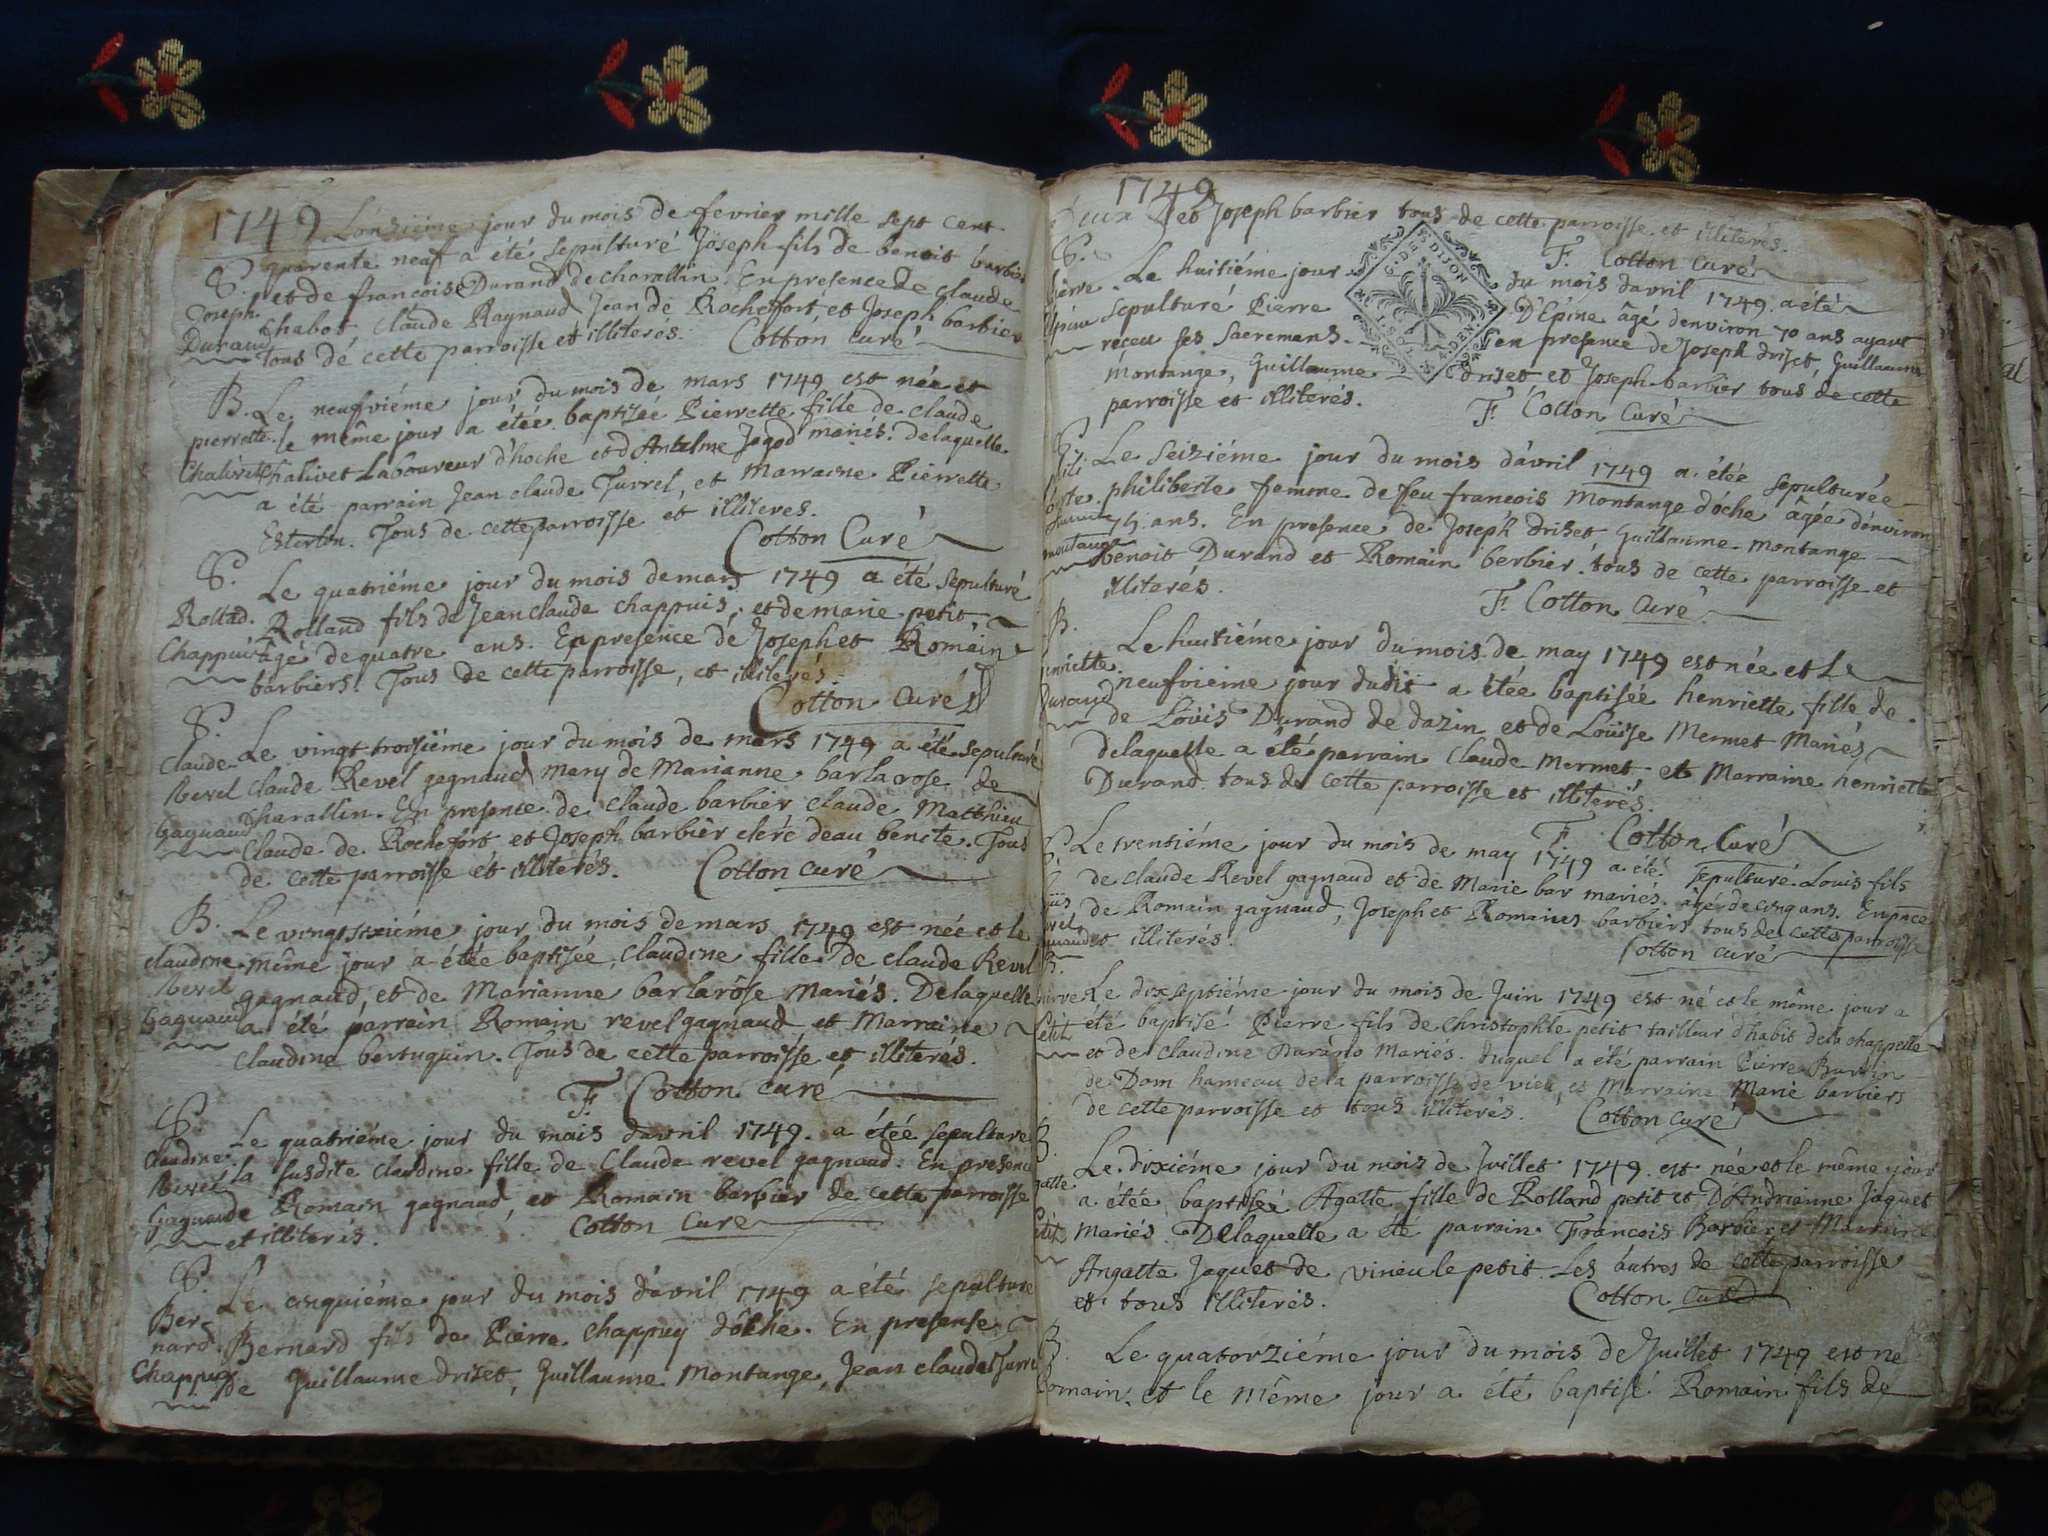 1749 L'onziéme jour du mois de fevrier mille sept cent
S. quarente neuf a été sepulturé Joseph fils de benoit barbier
Joseph et de francoise Durand de charallin. En presence de claude
Durand chabot claude Raynaud Jean de Rochefort, et Joseph barbier
tous de cette parroisse et illiteres. Cotton curé
B. Le neufviéme jour du mois de mars 1749 est née et
pierrette le même jour a étée baptisée Pierrette fille de claude
Chalivet chalivet Laboureur d'hoche et d'Antelme Jagod mariés. delaquelle
a été parrain Jean claude Turrel, et Marraine Pierrette
Estertin. Tous de cette parroisse et illiteres.
Cotton Curé
S. Le quatriéme jour du mois de mars 1749 a été sepulturé
Rolland. Rolland fils de Jean claude chappuis, et de marie petit,
Chappuis âgé de quatre ans. En presence de Joseph et Romain
barbiers. Tous de cette parroisse, et illiterés.
Cotton curé
S. Le vingt troisiéme jour du mois de mars 1749 a été sepulturé
claude Revel claude Revel gagnaud mary de Marianne barlarose de
Gagnaud charallin. En presence de claude barbier claude Matthieu
claude de Rochefort et Joseph barbier clerc d'eau benite. Tous
de cette parroisse et illiterés. Cotton curé
B. Le vingt sixiéme jour du mois de mars 1749 est née et le
claudine même jour a étée baptisée, claudine fille de claude Revel
Revel Gagnaud gagnaud, et de Marianne barlarôse Mariés. Delaquelle
a été parrain Romain revel gagnaud et Marraine
claudine bertuguin. Tous de cette parroisse et illiterés.
F. Cotton curé
S. Le quatriéme jour du mois d'avril 1749. a étée sepulturé
claudine Revel la susdite claudine fille de Claude revel gagnaud. En presence
Gagnaud de Romain gagnaud, et Romain barbier de cette parroisse
et illiterés. Cotton Curé
S. Le cinquiéme jour du mois d'avril 1749 a été sepulturé
Bernard Bernard fils de Pierre Chappuy d'ôche. En presense
Chappuy de Guillaume driset, Guillaume Montange, Jean claude Turrel
1749
Deux et Joseph barbier tous de cette parroisse, et illiterés.
F. Cotton curé
G. DE DIJON
S. Le huitiéme jour du mois d'avril 1749. a été
Pierre D'Epine sepulturé Pierre D'Epine âgé d'environ 70 ans ayant
receu ses Sacremens. en presence de Joseph driset, Guillaume
montange, Guillaume driset et Joseph barbier tous de cette
parroisse et illiterés. F. Cotton Curé
S. Le Seiziéme jour du mois d'avril 1749 a étée sepulturée
philiberte femme de feu francois Montange d'óche âgée d'environ
75 ans. En presence de Joseph driset Guillaume Montange
montange benoit Durand et Romain berbier. tous de cette parroisse et
illiterés. F. Cotton Curé
B. Le huitiéme jour du mois de may 1749 est née et le
henriette neufvieme jour dudit a étée baptisée henriette fille de
Durand de Loüis Durand de dazin et de Loüise Mermet Mariés
delaquelle a été parrain claude Mermet, et Marraine henriette
Durand. tous de cette parroisse et illiterés.
F. Cotton Curé
S. Le trentiéme jour du mois de may 1749 a été Sepulturé Louis fils
de claude Revel gagnaud et de Marie bar mariés. âgé de cinq ans. En pnce
de Romain gagnaud, Joseph et Romains barbiers tous de cette parroisse
et illiterés. Cotton curé
B. Le dixseptiéme jour du mois de Juin 1749 est né et le même jour a
pierre petit été baptisé Pierre fils de christophle petit tailleur d'habit de la chappelle
et de claudine Durand Mariés. duquel a été parrain Pierre Burrin
de Dom hameau de la parroisse de vieu, et Marraine Marie barbiers
de cette parroisse et tous illiterés. Cotton curé
B. Le dixiéme jour du mois de Juillet 1749. est née et le même jour
agatte a étée baptisée Agatte fille de Rolland petit et D'Andrianne Jaquet
petit Mariés. Delaquelle a été parrain Francois Barbier et Marraine
Angatte Jaquet de virieu le petit. Les autres de cette parroisse
et tous illiterés. Cotton curé
B. Le quatorziéme jour du mois de Juillet 1749 est né
Romain. et le même jour a été baptisé Romain fils de